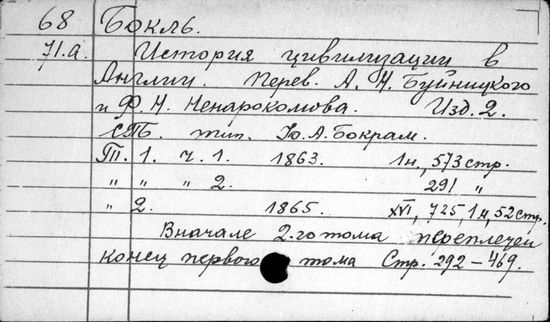 68 Бокль.
71.а. История цивилизации в
Англии. Перев. А. Н. Буйницкого
и Ф. Н. Ненарокомова. Изд. 2.
СПБ. тип. Ю. А. Бокрам.
Т. 1. ч. 1. 1863. 1н., 573 стр.
" " " 2. 291 "
" 2. 1865. XVI, 725, 1н, 52 стр.
Вначале 2-го тома переплечен
конец первого тома Стр. 292-469.